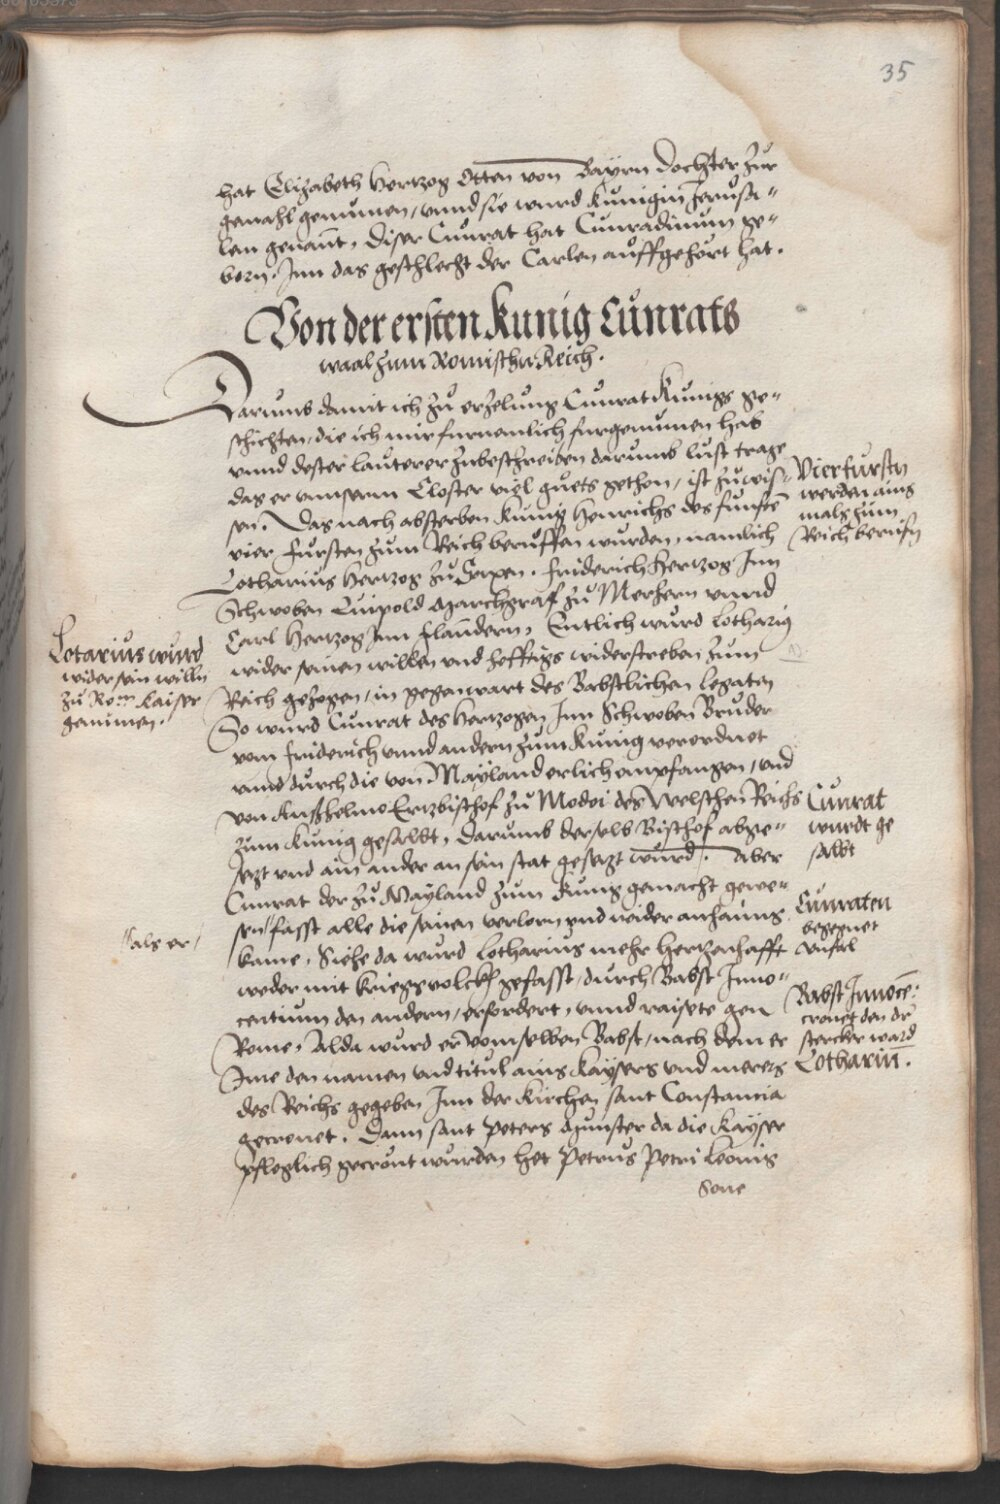 35
hat Elizabeth Hertzog Otten von Bayrn Dochter zur
gemahl genumen, vnnd sie wurd Kunigin Jerusa-
lem genant, diser Cunrat hat Cunradinum ge-
born. Inn das geschlecht der Carlen auffgehört hat.
Von der ersten Kunig Cunrats
waal zum Romischn Reich.
Darumb damit ich zu erzelung Cunrat Kunigs ge-
schichten, die ich mir furnemlich furgenumen hab
vnnd dester lauterer zubeschreiben darumb lust trage
das er vnnserm Closter viel guets gethon, ist zuwis-
sen. Das nach absterben Kunig Henrichs des funften
vier fursten zum Reich beruffen wurden, namlich
Lotharius Hertzog zu Saxen. Friderich Hertzog Inn
Schwoben Luipold Marchgraf zu Merhern vnnd
Carl Hertzog Inn Flandern, Entlich wurd Lotharig
wider seinen willen vnd hefftigs widerstreben zum
Reich gezogen, in gegenwart des Babstlichen legaten
So wurd Cunrat des Hertzogen Inn Schwoben Bruder
vom Friderich vnnd andern zum Kunig verordnet
vnnd durch die von Mayland erlich empfangen, vnd
von Anßhelmo Ertzbischof zu Modoi des Welschen Reichs
zum Kunig gesalbt, Darumb derselb Bischof abge-
setzt vnd ain ander an sein stat gesetzt wurd. Aber
Cunrat der zu Mayland zum Kunig gemacht gewe-
sen fasst alle die seinen verlorn vnd wider anhaims
kame, Siehe da wurd Lotharius mehr Hertzenhafft
weder mit Kriegsvolckh gefasst, durch Babst Inno-
centium den andern, erfordert, vnnd raisete gen
Rome, Alda wurd er vom selben Babst, nach dem er
Ime den namen vnd titul ains Kaysers vnd merers
des Reichs gegeben Inn der Kirchen sant Constancia
gecronet. Dann sant Peters Munster da die Kayser
pfleglich gecrönt wurden het Petrus Petri Leonis
Sone
Vier fursten
werden ains
mals zum
Reich beruffn
Lotarius wurd
wider sein willn
zu Rom Kaiser
genumen.
Cunrat
wurdt ge
salbt
Cunraten
begegnet
vnfal
als er
Babst Innocen:
cronet den der
stercker ward
Lotharium.